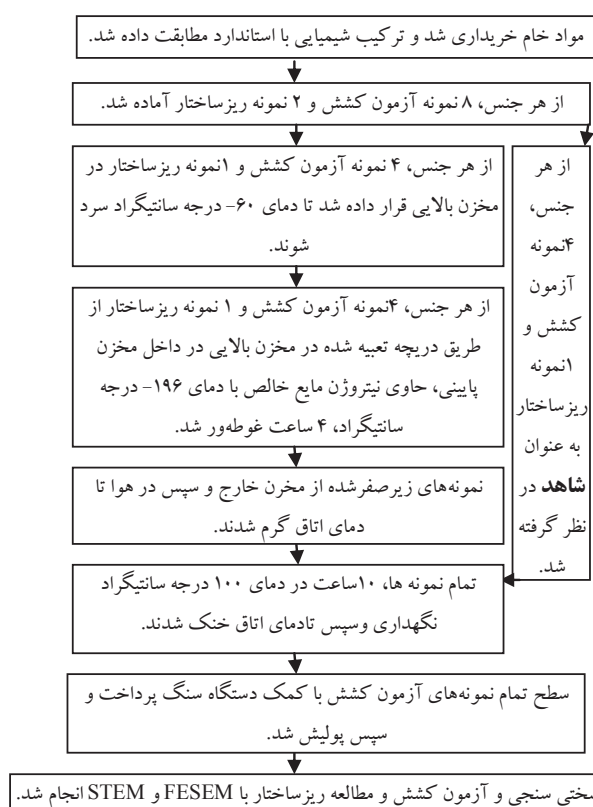 مواد خام خریداری شد و ترکیب شیمیایی با استاندارد مطابقت داده شد.
از هر جنس، ۸ نمونه آزمون کشش و ۲ نمونه ریزساختار آماده شد.
از هر جنس، ۴ نمونه آزمون کشش و ۱نمونه ریزساختار در
مخزن بالایی قرار داده شد تا دمای ۶۰- درجه سانتیگراد سرد
شوند.
از هر جنس، ۴نمونه آزمون کشش و ۱ نمونه ریزساختار از
طریق دریچه تعبیه شده در مخزن بالایی در داخل مخزن
پایینی، حاوی نیتروژن مایع خالص با دمای ۱۹۶- درجه
سانتیگراد، ۴ ساعت غوطه‌ور شد.
نمونه‌های زیرصفرشده از مخرن خارج و سپس در هوا تا
دمای اتاق گرم شدند.
از هر
جنس،
۴نمونه
آزمون
کشش و
۱نمونه
ریزساختار
به عنوان
شاهد در
نظر گرفته
شد.
تمام نمونه ها، ۱۰ساعت در دمای ۱۰۰ درجه سانتیگراد
نگهداری وسپس تادمای اتاق خنک شدند.
سطح تمام نمونه‌های آزمون کشش با کمک دستگاه سنگ پرداخت و
سپس پولیش شد.
سنجی و آزمون کشش و مطالعه ریزساختار با FESEM و STEM انجام شد.